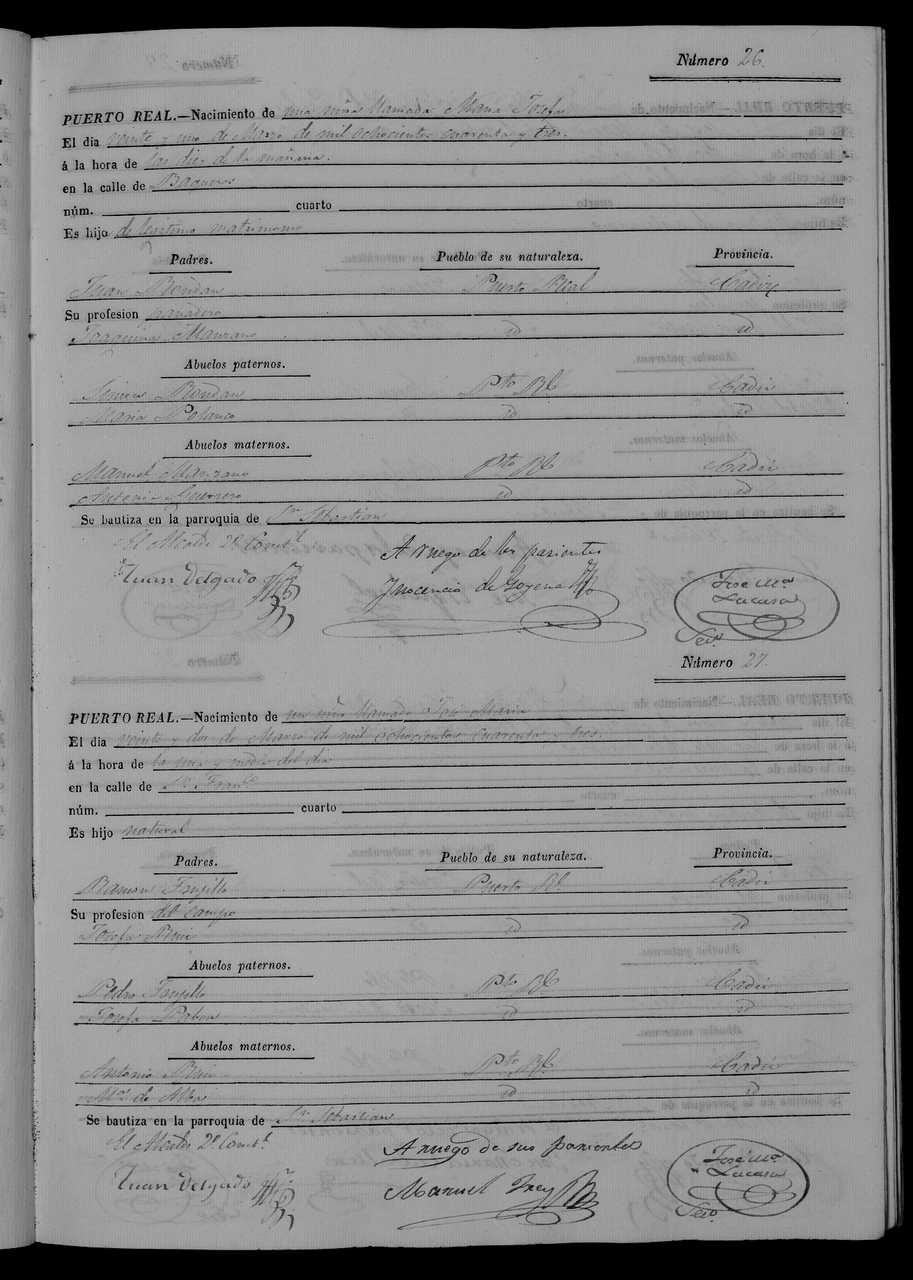 Número 26.
PUERTO REAL.—Nacimiento de una niña llamada Maria Josefa
El dia veinte y uno de Marzo de mil ochocientos cuarenta y tres.
á la hora de las diez de la mañana.
en la calle de
núm. cuarto
Es hijo de lexitimo matrimonio
Padres. Pueblo de su naturaleza. Provincia.
Juan Puerto Real Cadiz
Su profesion ganadero
Joaquina Manzano id id
Abuelos paternos.
Pto Rl Cadiz
Maria Polanco id id
Abuelos maternos.
Manuel Manzano Pto Rl Cadiz
Antonia Guerrero id id
Se bautiza en la parroquia de Sn Sebastian
El Alcalde 2º Constl
Juan Delgado
A ruego de los parientes
Ynocencio de Goyena
José Ma
Lacasa
Secº
Número 27.
PUERTO REAL.—Nacimiento de un niño llamado José Maria
El dia veinte y dos de Marzo de mil ochocientos cuarenta y tres.
á la hora de la una y media del dia
en la calle de Sn Franco
núm. cuarto
Es hijo natural
Padres. Pueblo de su naturaleza. Provincia.
Ramon Trujillo Puerto Rl Cadiz
Su profesion del campo
Josefa id id
Abuelos paternos.
Pedro Trujillo Pto Rl Cadiz
Josefa Pabon id id
Abuelos maternos.
Antonio Pto Rl Cadiz
Ma de Alba id id
Se bautiza en la parroquia de Sn Sebastian
El Alcalde 2º Constl
Juan Delgado
A ruego de sus parientes
Manuel Frey
José Ma
Lacasa
Secº